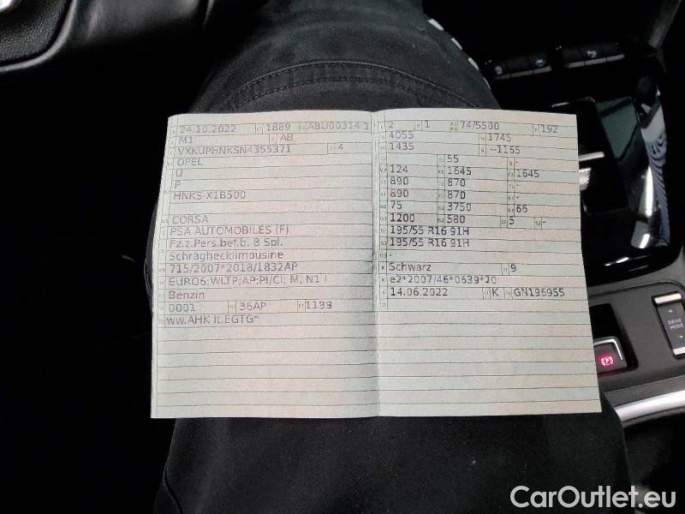 24.10.2022 1889 ABU00314 1
M1 AB
4
OPEL
U
P
HNKS-X1B500
CORSA
PSA AUTOMOBILES (F)
Fz.z.Pers.bef.b. 8 Spl.
Schräghecklimousine
715/2007*2018/1832AP
EURO6;WLTP;AP;PI/CI; M, N1 I
Benzin
0001 36AP 1199
ww.AHK lt.EGTG*
2 1 74/5500 192
4055 1745
1435 -1155
55 -
124 1645 1645
890 870 -
890 870 -
75 3750 66
1200 580 5 -
195/55 R16 91H
195/55 R16 91H
-
Schwarz 9
e2*2007/46*0639*20
14.06.2022 K GN196955
DRIVE
MODE
CarOutlet.eu